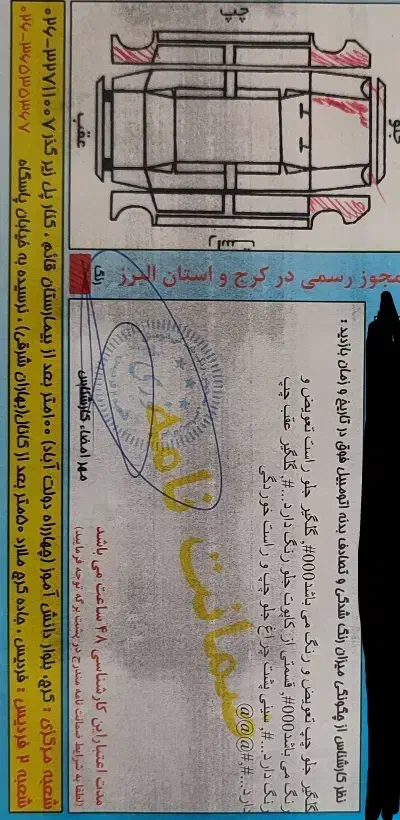 جلو
چپ
راست
عقب
مجوز رسمی در کرج و استان البرز
رنگ
نظر کارشناس از چگونگی میزان رنگ شدگی و تصادف بدنه اتومبیل فوق در تاریخ و زمان بازدید :
گلگیر جلو چپ تعویض و رنگ می باشد000#, گلگیر جلو راست تعویض و
رنگ می باشد000#, قسمتی از کاپوت جلو رنگ دارد...#, گلگیر عقب چپ
رنگ دارد...#, سینی پشت چراغ جلو چپ و راست خوردگی
دارد...#,#@@@
ضمانت نامه
مهر امضاء کارشناس
مدت اعتبار این کارشناسی ۴۸ ساعت می باشد
(لطفا به شرایط ضمانت نامه مندرج در پشت برگه توجه فرمایید)
شعبه مرکزی : کرج، بلوار دانش آموز (چهارراه دولت آباد) ۱۰۰متر بعد از بیمارستان قائم ، کنار پل زیر گذر ۳۲۷۱۱۰۰۷-۰۲۶
شعبه ۲ فردیس : فردیس ، جاده کرج ملارد ۵۰متر بعد از کانال(بهاران شرقی) ، نرسیده به خیابان پاسگاه ۳۶۵۳۵۳۶۷-۰۲۶